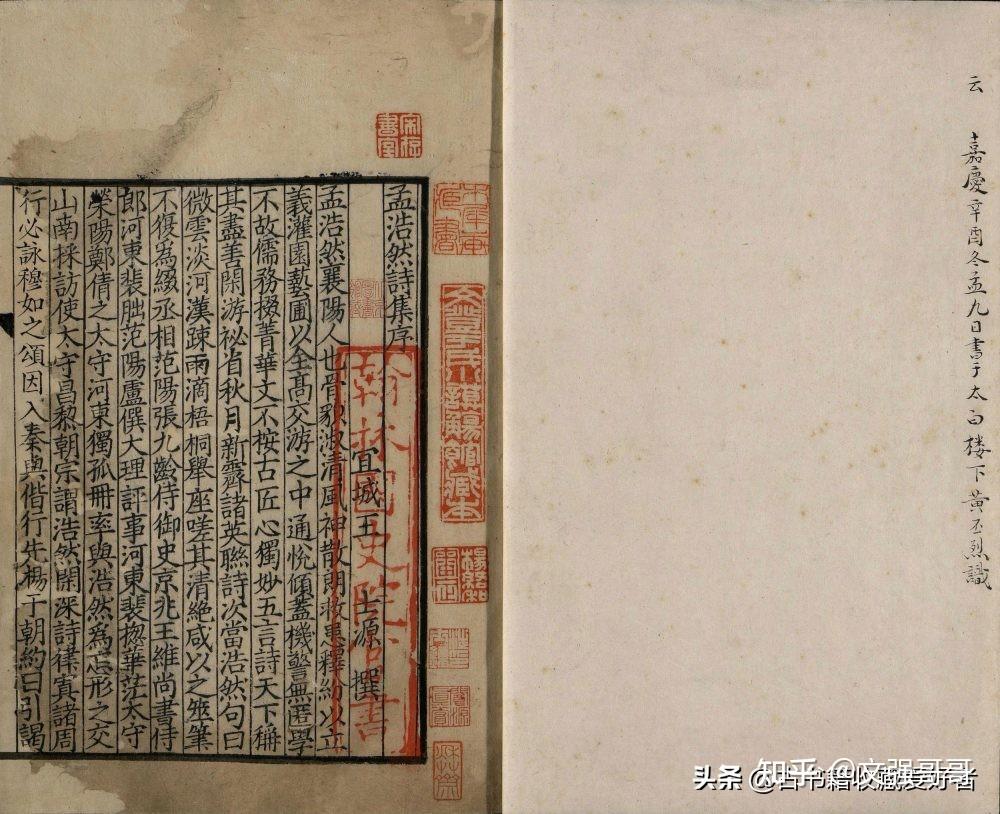 云
嘉慶辛酉冬孟九日書于太白楼下黃丕烈識
孟浩然詩集序
宜城王士源撰
孟浩然襄陽人也骨貌淑清風神散朗救患釋紛以立
義灌園藝圃以全髙交游之中通恱傾蓋機警無匿學
不故儒務掇菁華文不桉古匠心獨妙五言詩天下稱
其盡善閑游祕省秋月新霽諸英聯詩次當浩然句曰
微雲淡河漢踈雨滴梧桐舉座嗟其清絶咸以之閣筆
不復爲綴丞相范陽張九齡侍御史京兆王維尚書侍
郎河東裴朏范陽盧僎大理評事河東裴揔華茫太守
榮陽鄭倩之太守河東獨孤冊率與浩然爲忘形之交
山南採訪使太守昌黎朝宗謂浩然閑深詩律寘諸周
行必詠穆如之頌因入秦與偕行先楊于朝約日引謁
宋存書室
楊紹和
翰林國史院官書
头条 @古书籍收藏爱好者
知乎 @文强哥哥